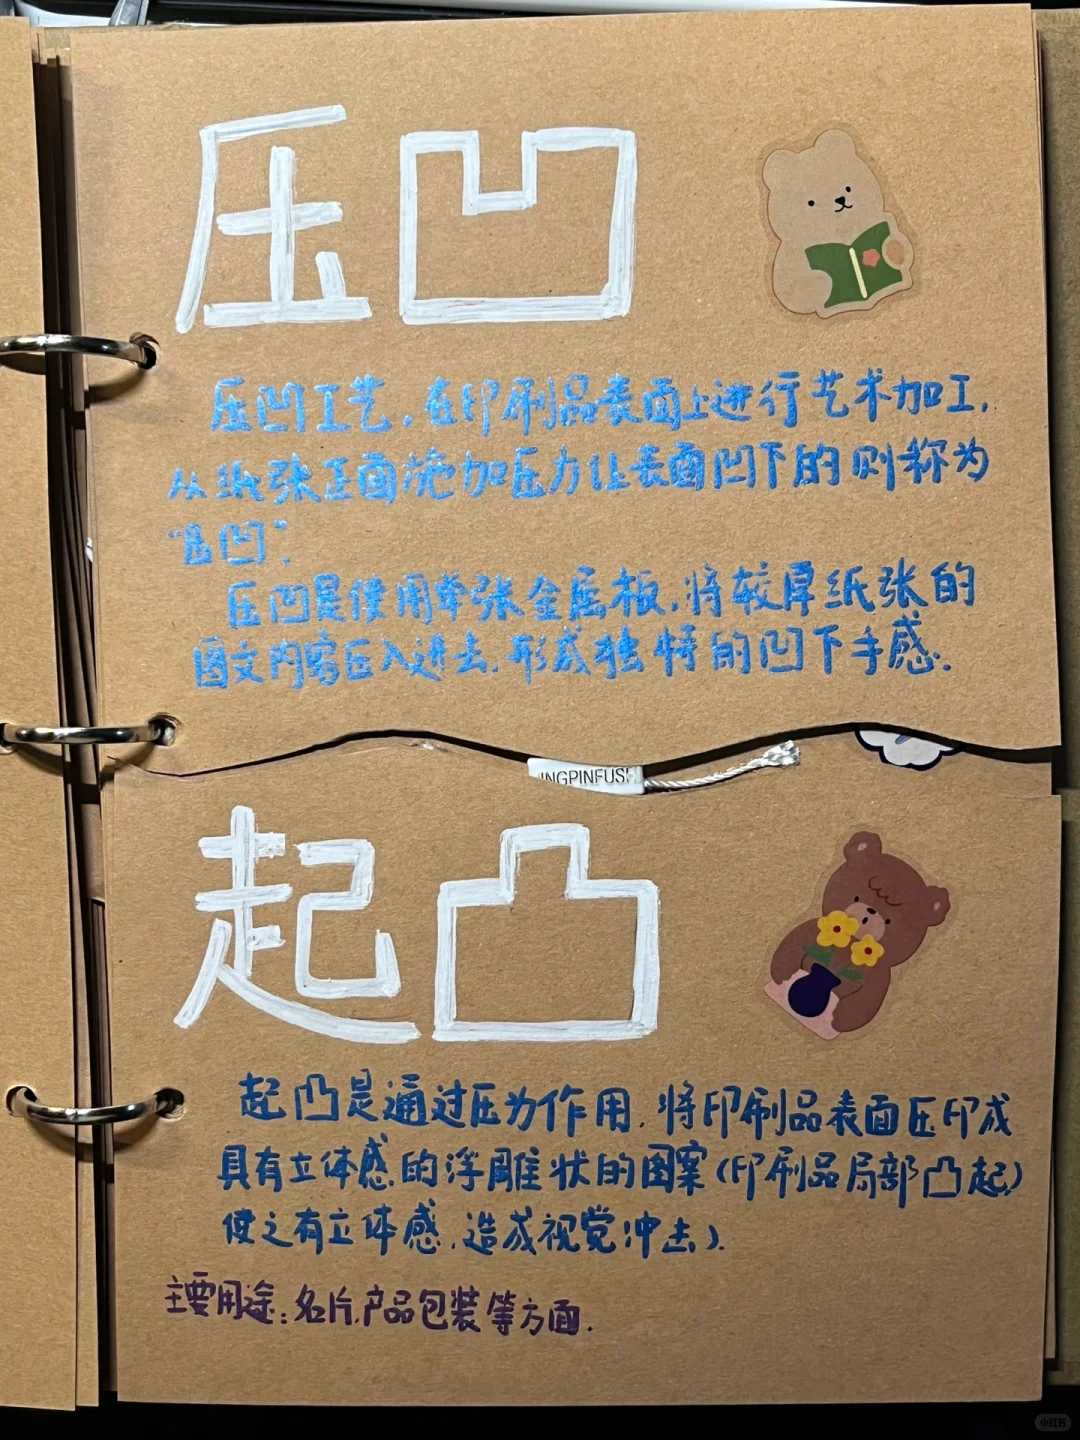 压凹
压凹工艺，在印刷品表面上进行艺术加工，
从纸张正面施加压力让表面凹下的则称为
“压凹”。
压凹是使用单张金属板，将较厚纸张的
图文内容压入进去，形成独特的凹下手感。
INGPINFUSH
起凸
起凸是通过压力作用，将印刷品表面压印成
具有立体感的浮雕状的图案（印刷品局部凸起，
使之有立体感，造成视觉冲击）．
主要用途：名片，产品包装等方面．
小红书